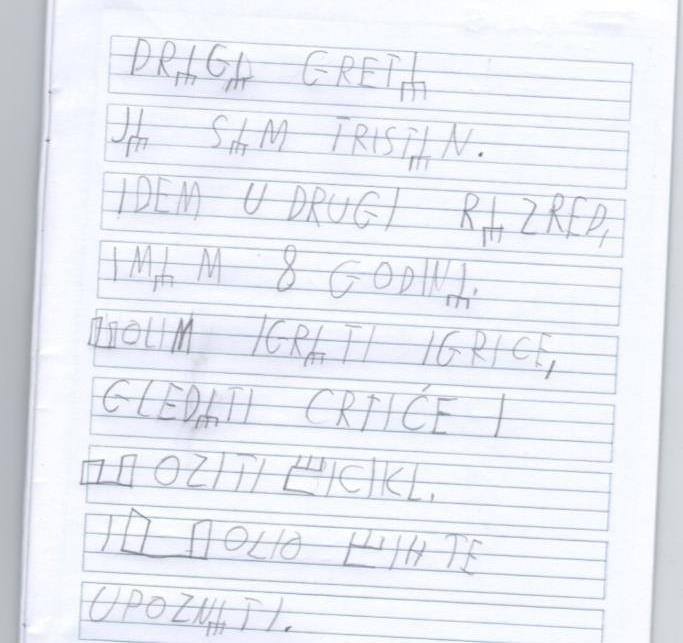 DRⰀGⰀ GRETⰀ
JⰀ SⰀM TRISTⰀN.
IDEM U DRUGI RⰀZRED,
IMⰀM 8 GODINⰀ.
ⰂOLIM IGRⰀTI IGRICE,
GLEDⰀTI CRTIĆE I
ⰂOZITI ⰁICIKL.
I ⰂOLIO ⰁIH TE
UPOZNⰀTI.